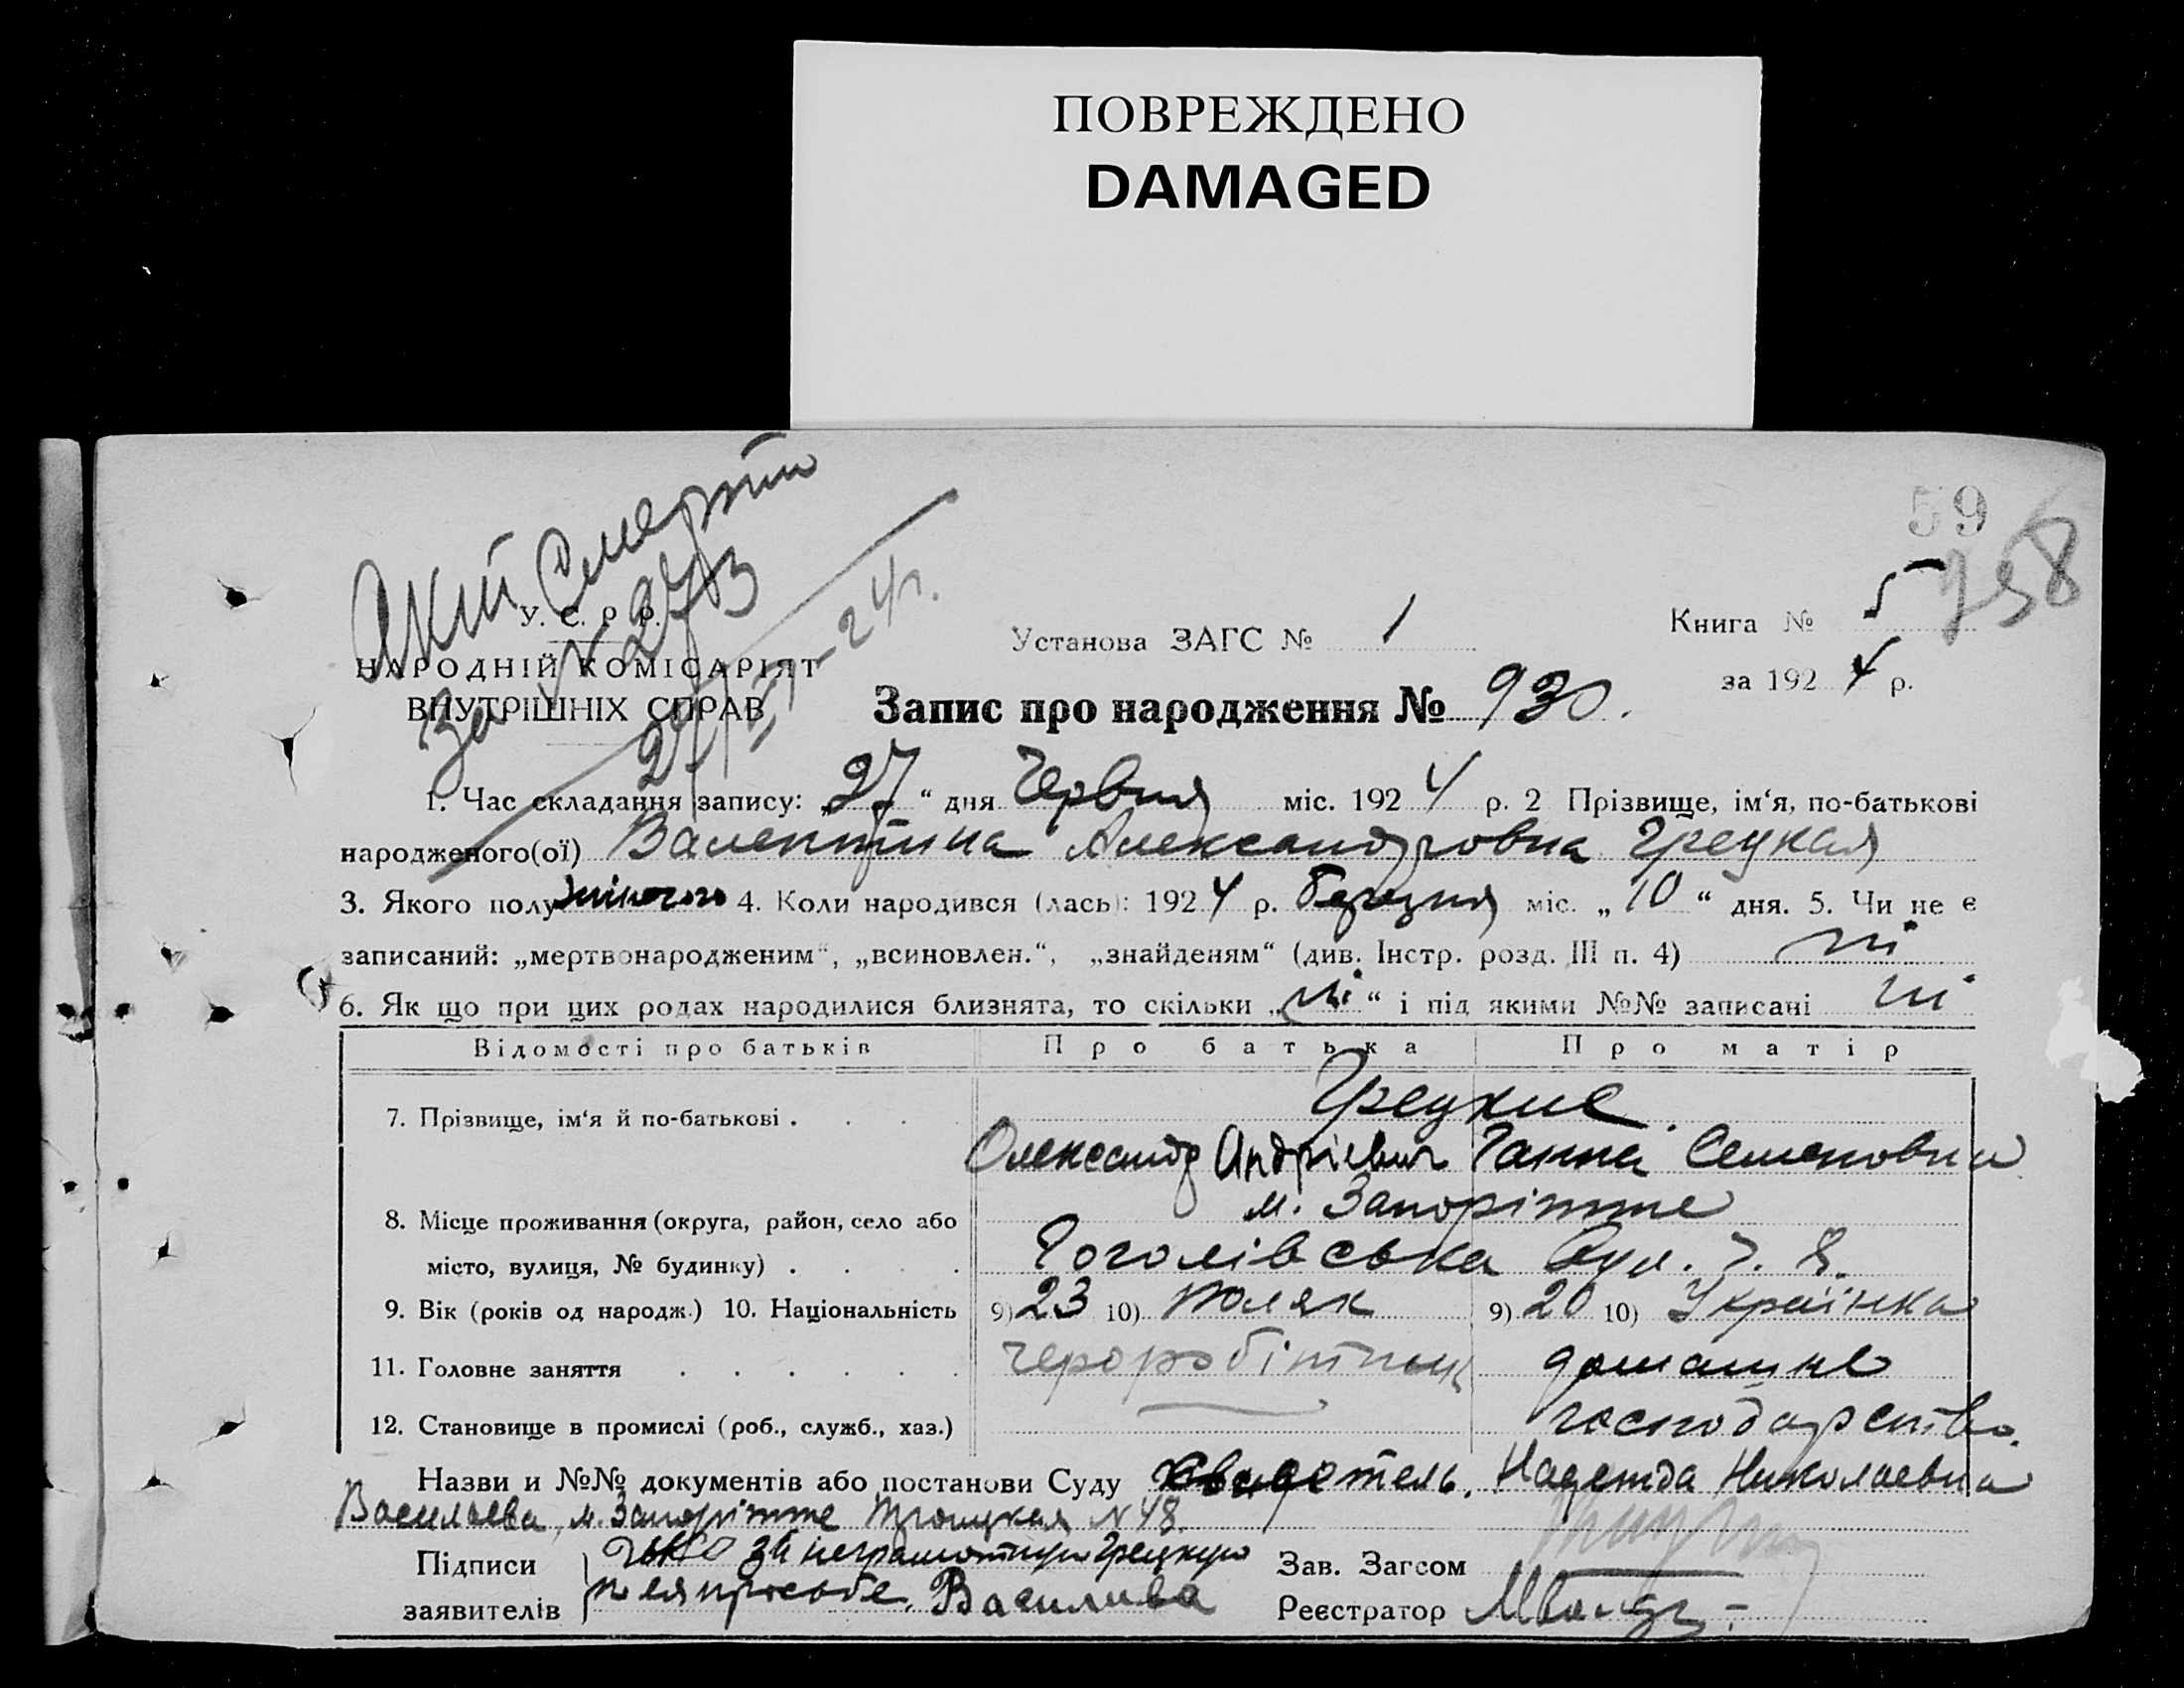 ПОВРЕЖДЕНО
DAMAGED
59
758
Акт Смерти
за № 273
24г.
У. С. Р. Р.
НАРОДНІЙ КОМІСАРІЯТ
ВНУТРІШНІХ СПРАВ
Установа ЗАГС № 1
Книга № 5
за 1924 р.
Запис про народження № 930.
1. Час складання запису: „27“ дня Червня міс. 1924 р. 2 Прізвище, ім‘я, по-батькові
народженого(ої) Валентина Александровна Грецкая
3. Якого полу жіночого 4. Коли народився (лась): 1924 р. березня міс. „10“ дня. 5. Чи не є
записаний: „мертвонародженим“, „всиновлен.“, „знайденям“ (див. Інстр. розд. III п. 4) ні
6. Як що при цих родах народилися близнята, то скільки „ні“ і під якими №№ записані ні
Відомості про батьків Про батька Про матір
7. Прізвище, ім‘я й по-батькові . . . . Грецкие
Олександр Андріевич Ганна Семеновна
8. Місце проживання (округа, район, село або м. Запоріжже
місто, вулиця, № будинку) . . . . Гоголівська вул. 7. 8.
9. Вік (років од народж.) 10. Національність 9) 23 10) поляк 9) 20 10) Українка
11. Головне заняття . . . . . . чероробітник домашне
12. Становище в промислі (роб., служб., хаз.) господарство.
Назви и №№ документів або постанови Суду свидетель. Надежда Николаевна
Василева, м. Запоріжже Троицкая № 48
Підписи за неграмотную Грецкую
заявителів по ея просьбе. Василева
Зав. Загсом
Реєстратор